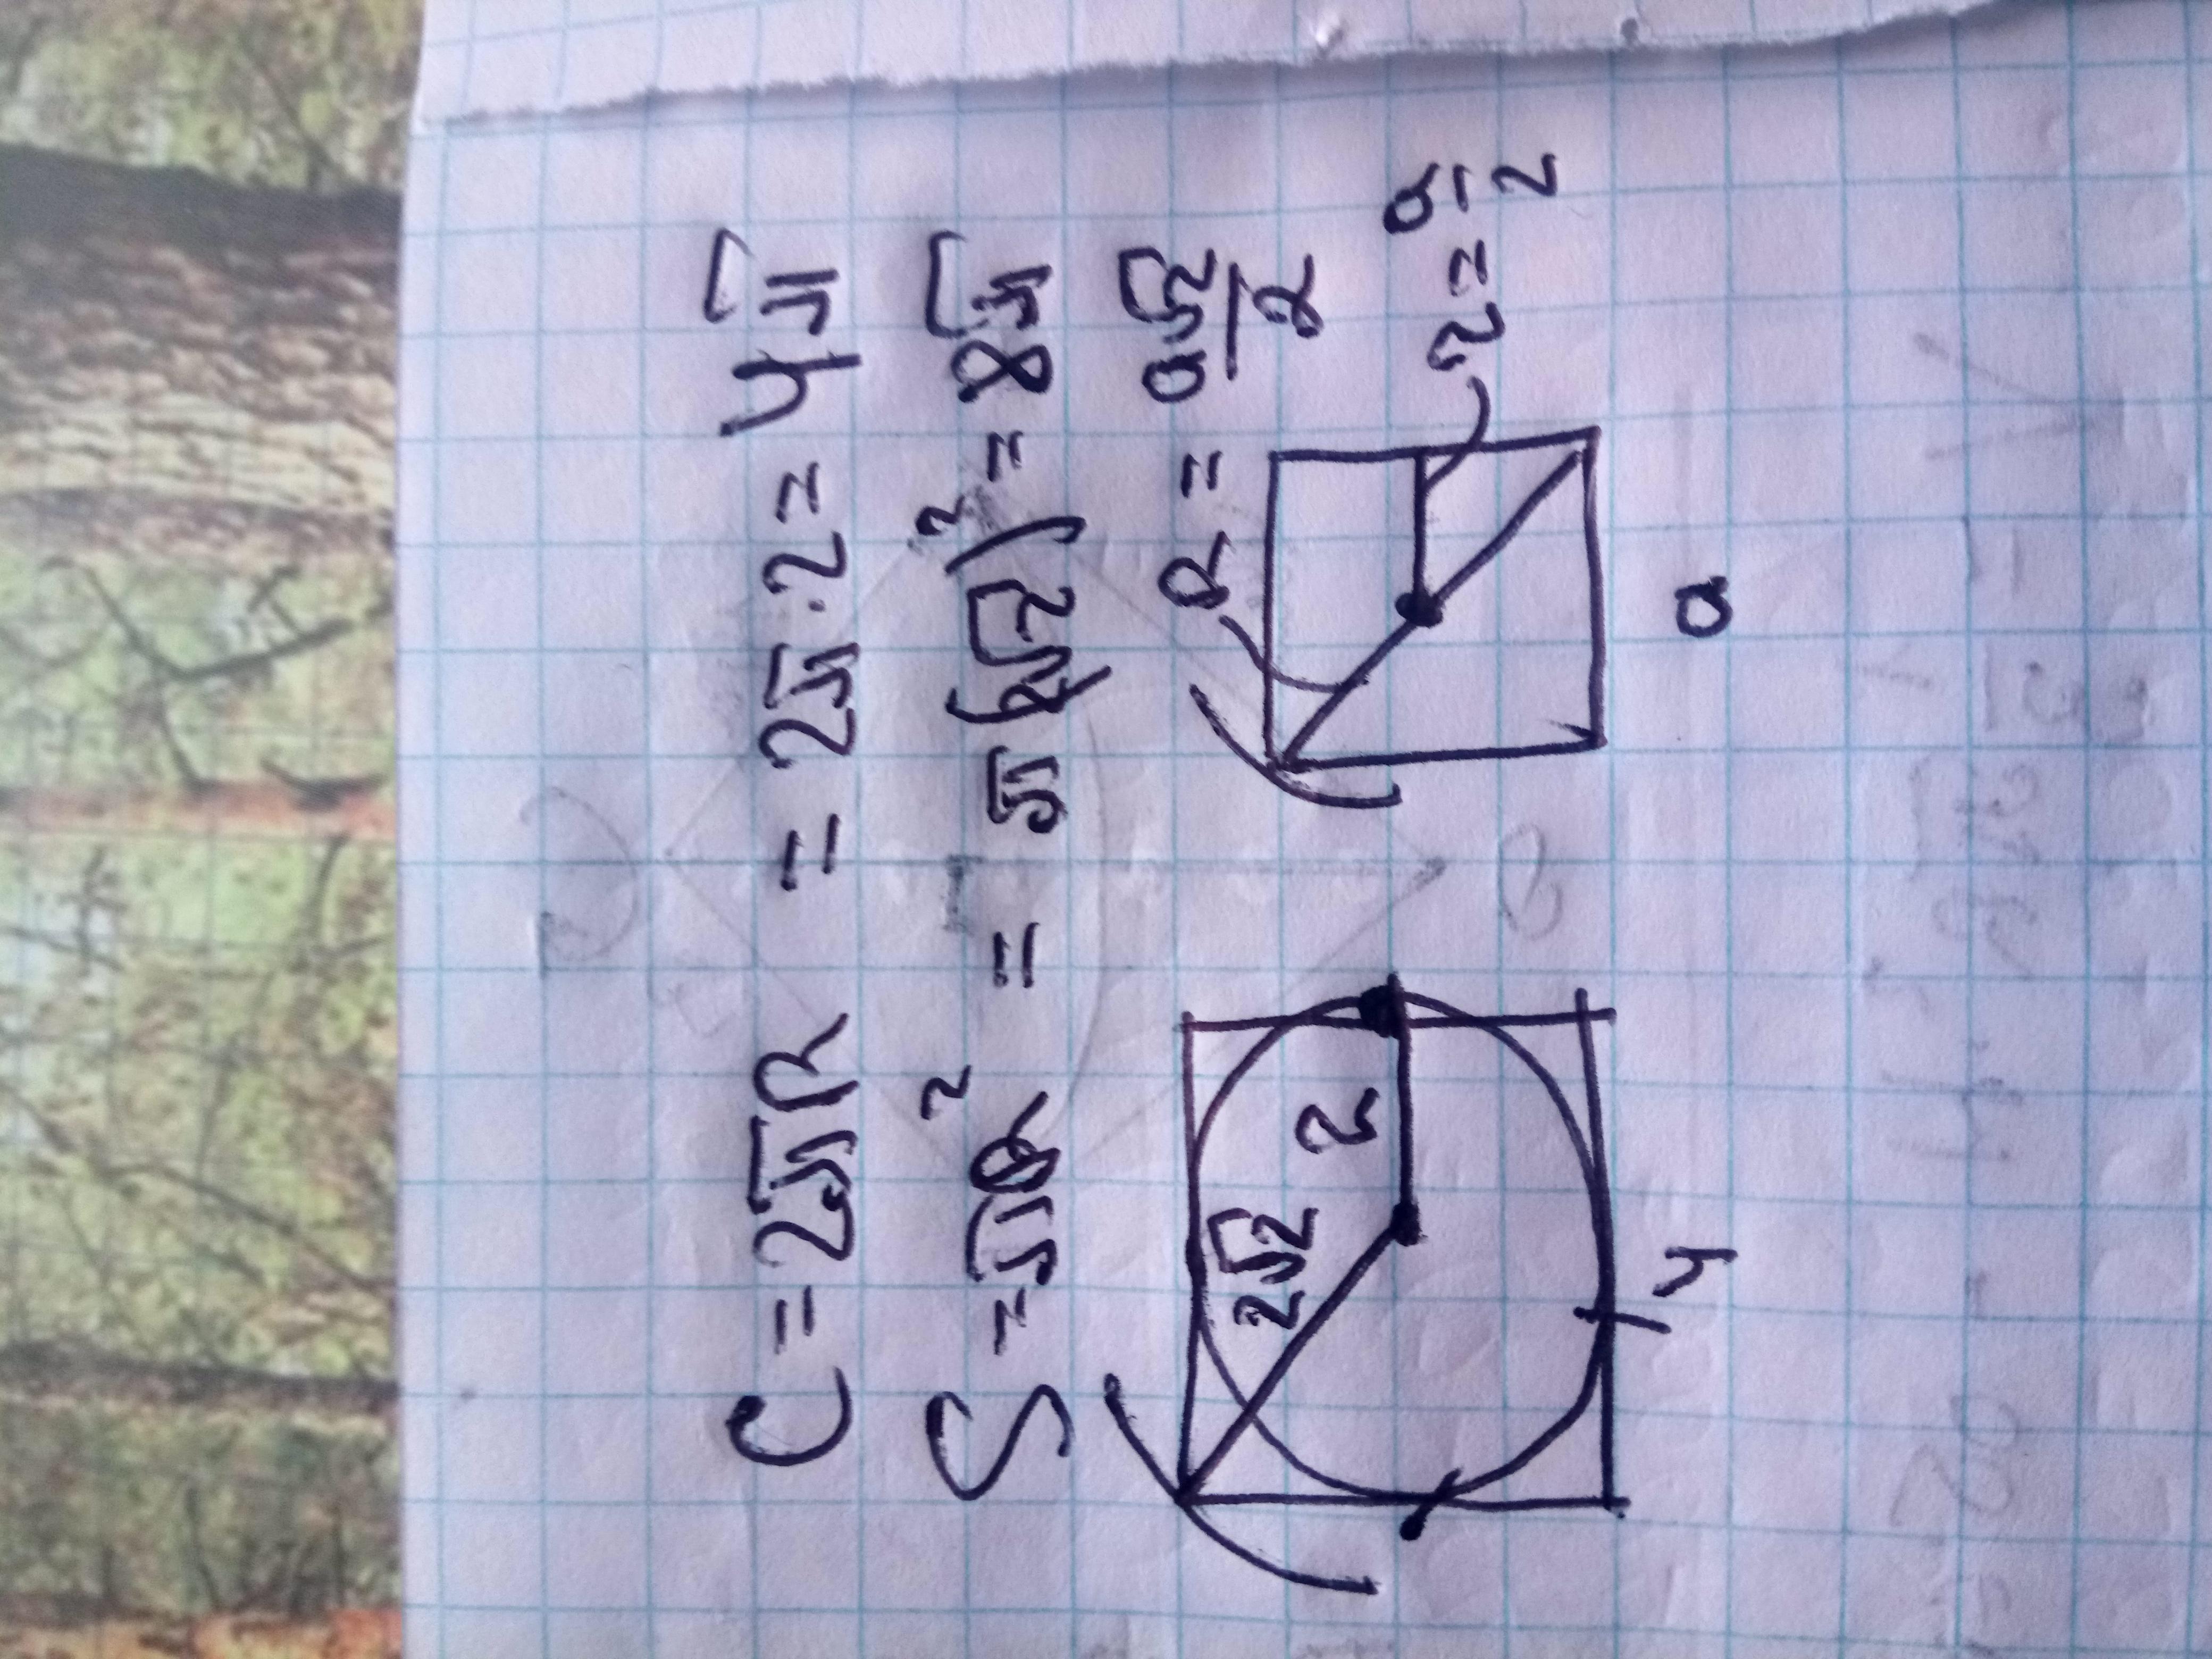 C = 2πR = 2π · 2 = 4π
S = πR² = π(2√2)² = 8π
R = a√2/2
2√2 2
r = a/2
4
a